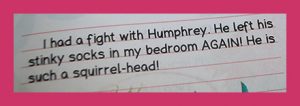 I had a fight with Humphrey. He left his
stinky socks in my bedroom AGAIN! He is
such a squirrel-head!